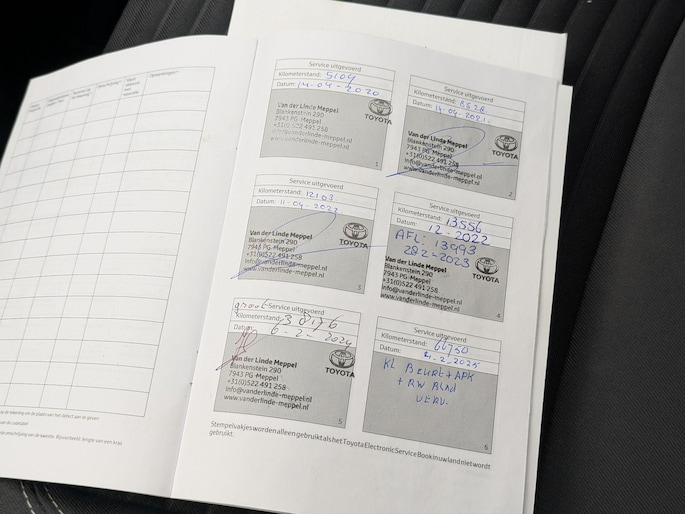 Service uitgevoerd
Kilometerstand: 5109
Datum: 14-04-2020
Van der Linde Meppel
Blankenstein 290
7943 PG Meppel
+31(0)522 491 258
info@vanderlinde-meppel.nl
www.vanderlinde-meppel.nl
TOYOTA
1
Service uitgevoerd
Kilometerstand:
Datum: 14-04-2021
Van der Linde Meppel
Blankenstein 290
7943 PG Meppel
+31(0)522 491 258
info@vanderlinde-meppel.nl
www.vanderlinde-meppel.nl
TOYOTA
2
Service uitgevoerd
Kilometerstand: 12103
Datum: 11-04-2022
Van der Linde Meppel
Blankenstein 290
7943 PG Meppel
+31(0)522 491 258
info@vanderlinde-meppel.nl
www.vanderlinde-meppel.nl
TOYOTA
3
Service uitgevoerd
Kilometerstand: 13556
Datum: 12-2022
AFL: 13993
28-2-2023
Van der Linde Meppel
Blankenstein 290
7943 PG Meppel
+31(0)522 491 258
info@vanderlinde-meppel.nl
www.vanderlinde-meppel.nl
TOYOTA
4
groot Service uitgevoerd
Kilometerstand:
Datum: 6-2-2024
Van der Linde Meppel
Blankenstein 290
7943 PG Meppel
+31(0)522 491 258
info@vanderlinde-meppel.nl
www.vanderlinde-meppel.nl
TOYOTA
5
Service uitgevoerd
Kilometerstand:
Datum: -2-2025
KL BEURT + APK
+ RW BLAD
VERV.
6
Stempelvakjes worden alleen gebruikt als het Toyota Electronic Service Book in uw land niet wordt
gebruikt.